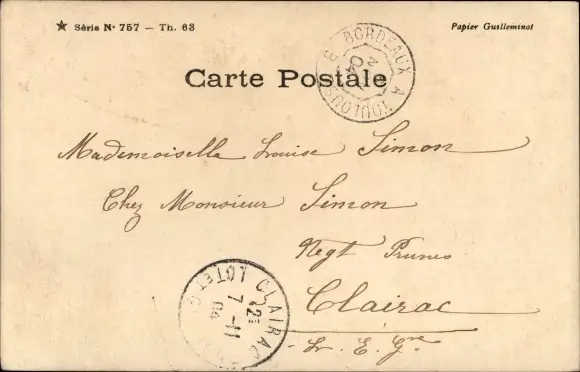 ★ Série Nº 757 — Th. 63
Papier Guilleminot
BORDEAUX A TOULOUSE
Carte Postale
Mademoiselle Louise Simon
Chez Monsieur Simon
Negt Prunes
Clairac
Lt. E. Gne
CLAIRAC LOT ET G
7 - 11
04